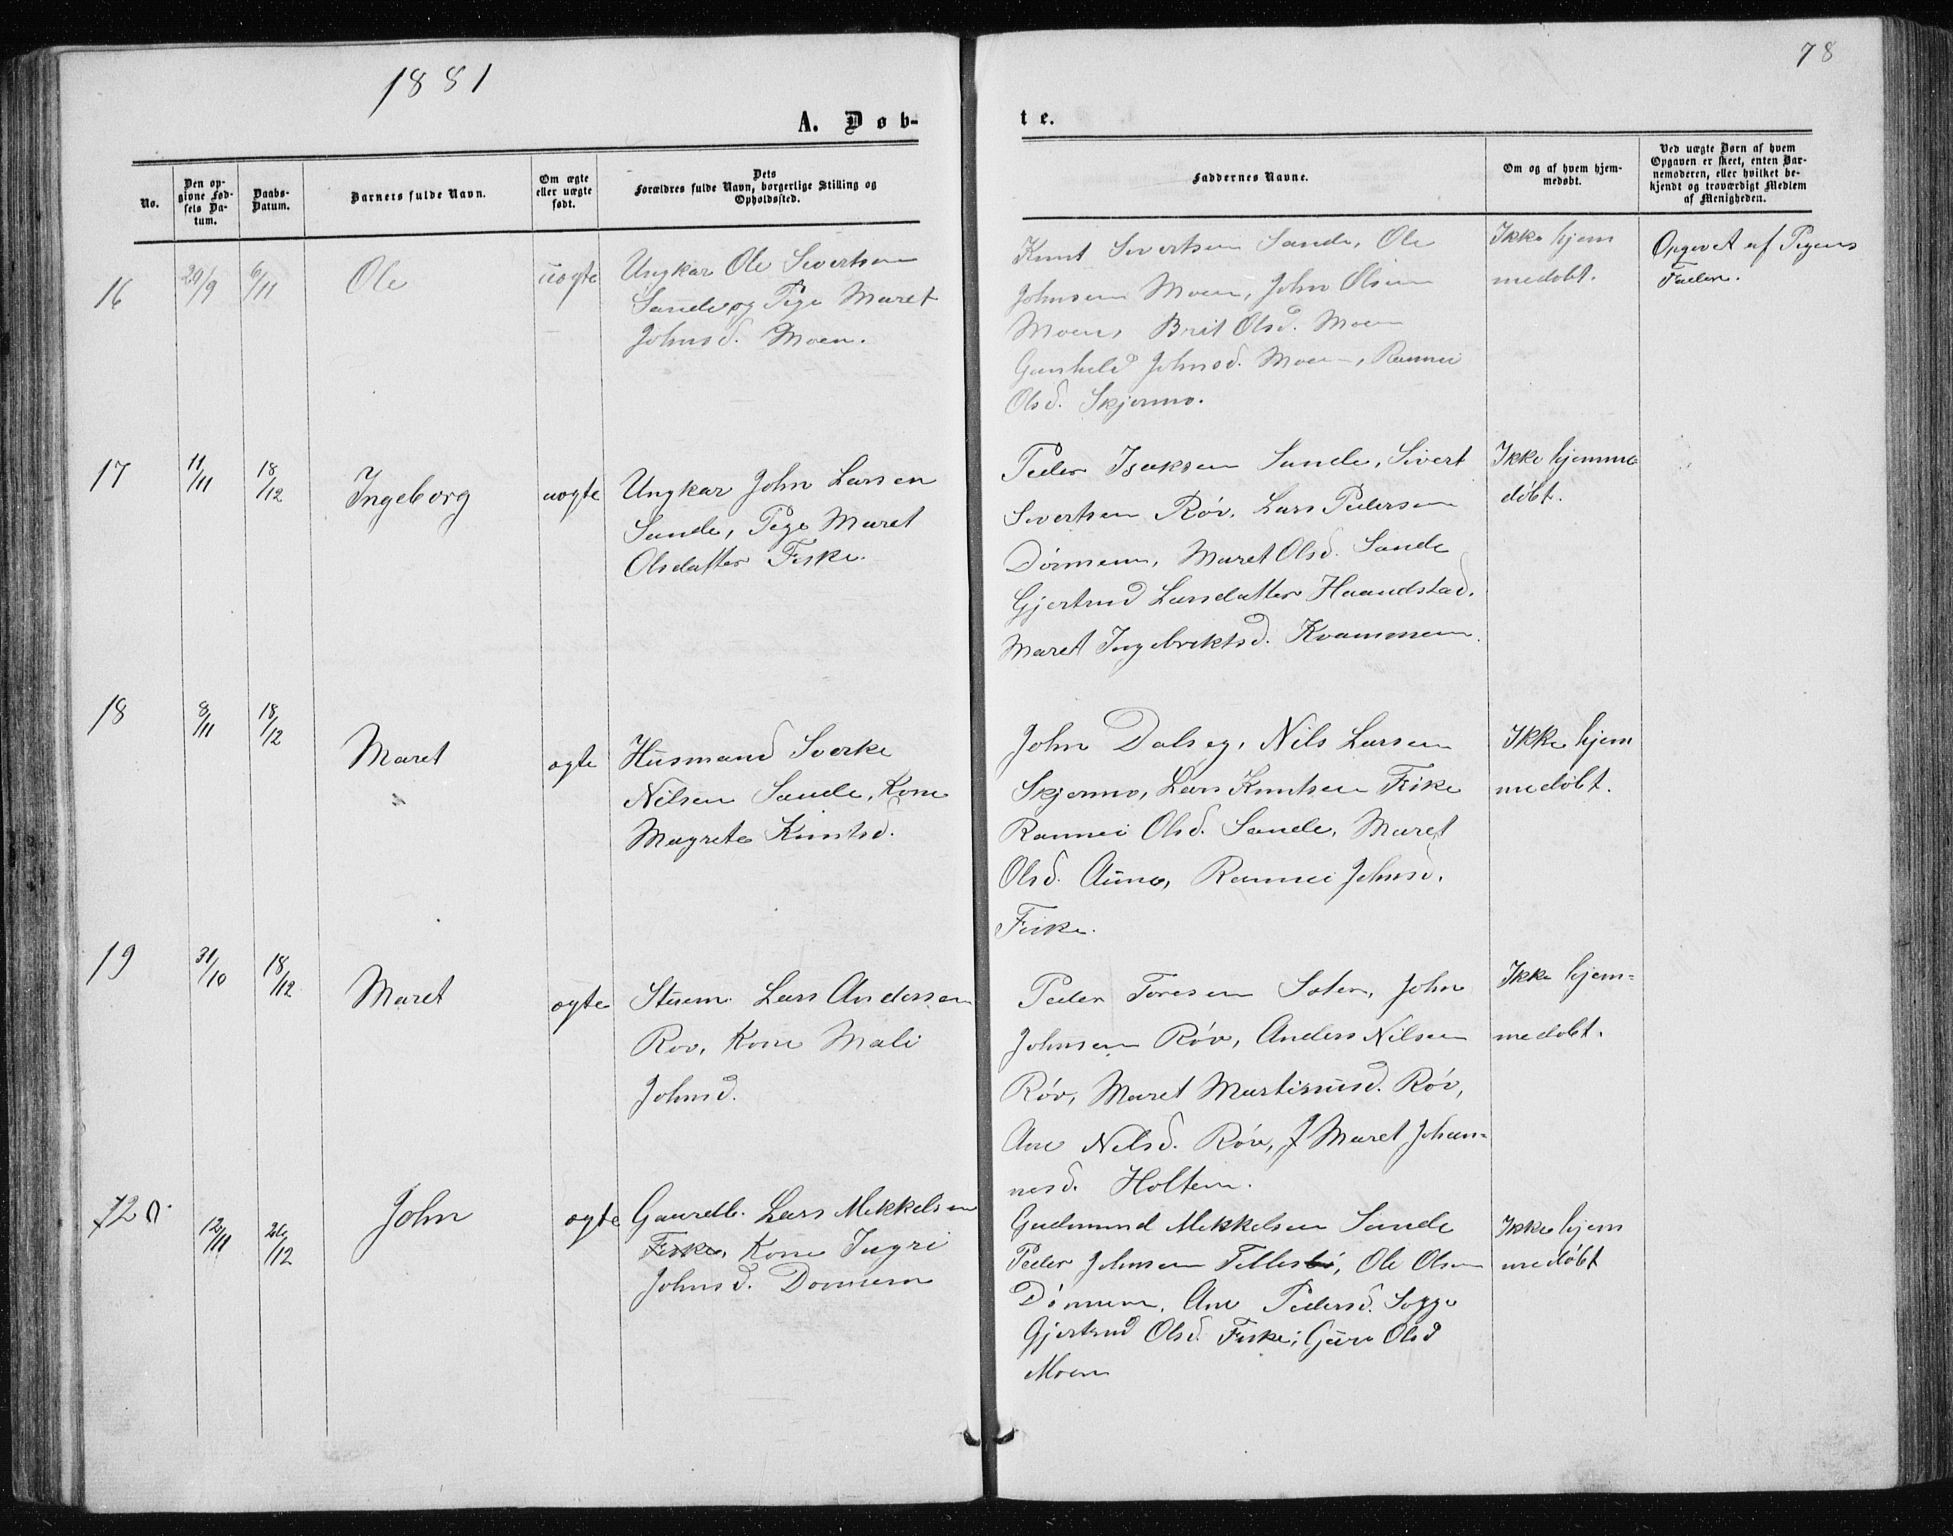 1881
78
A. Døb-
te.
No.
Den op-
givne Fød-
sels Da-
tum.
Daabs-
Datum.
Barnets fulde Navn.
Om ægte
eller uægte
født.
Dets
Forældres fulde Navn, borgerlige Stilling og
Opholdssted.
Faddernes Navne.
Om og af hvem hjem-
medøbt.
Ved uægte Børn af hvem
Opgaven er skeet, enten Bar-
nemoderen, eller hvilket be-
kjendt og troværdigt Medlem
af Menigheden.
16
29/9
6/11
Ole
uogte
Ungkar Ole Sivertsen
Sande og Pige Maret
Johnsd. Moen.
Knut Sivertsen Sande, Ole
Johnsen Moen, John Olsen
Moen, Brit Olsd. Moen
Gunhild Johnsd. Moen, Rannei
Olsd. Skjermo.
Ikke hjem
medøbt.
Opgevet af Pigens
Fader.
17
11/11
18/12
Ingeborg
uogte
Ungkar John Larsen
Sande, Pige Maret
Olsdatter Fiske.
Peder Isaksen Sande, Sivert
Sivertsen Røv, Lars Pedersen
Dønnem, Maret Olsd. Sande
Gjertrud Larsdatter Haandstad,
Maret Ingebriktsd. Kvammen.
Ikke hjemme
døbt.
18
8/11
18/12
Maret
ogte
Husmand Sverke
Nilsen Sande, Kone
Magrete Knutsd.
John Dalseg, Nils Larsen
Skjermo, Lars Knutsen Fiske
Rannei Olsd. Sande, Maret
Olsd. Aune, Rannei Johnsd.
Fiske.
Ikke hjem
medøbt.
19
31/10
18/12
Maret
ogte
Stuem. Lars Andersen
Rov, Kone Mali
Johnsd.
Peder Toresen Soter, John
Johnsen Røv, Anders Nilsen
Røv, Maret Martinusd. Røv,
Ane Nilsd. Røv, J Maret Johan-
nesd. Holten.
Ikke hjem-
medøbt.
20.
12/11
26/12
John
ogte
Gaardb. Lars Mikkelsen
Fiske, Kone Ingri
Johnsd. Donnem
Gudmund Mikkelsen Sande
Peder Johnsen Tellesbø, Ole Olsen
Dønnem, Ane Pedersd. Sogge
Gjertrud Olsd. Fiske; Guro Olsd
Moen
Ikke hjem
medøbt